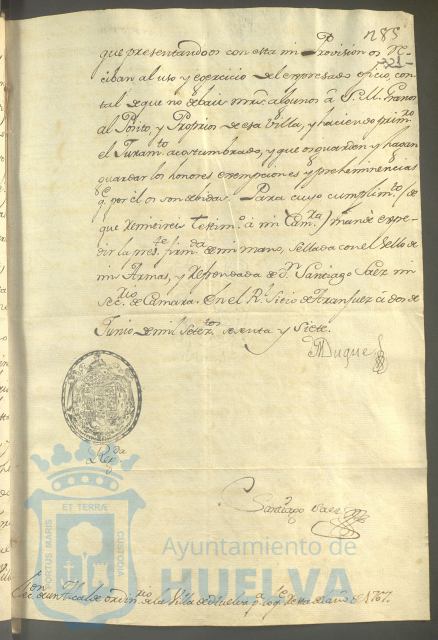 285
321
que presentandoos con esta mi Provision os re-
ciban al uso y exercicio del expresado oficio, con
tal de que no debais mrs. algunos à S. M. Granos
al Posito, y Proprios de esa Villa, y haciendo prim.ro
el Juram.to acostumbrado, y que os guarden y hagan
guardar los honores exempciones y preheminencias
q.e por el os son debidas. Para cuyo cumplim.to (de
que remitireis Testim.o à mi Cam.ra) mandè expe-
dir la pres.te firm.da de mi mano, sellada con el Sello de
mis Armas, y Refrendada de D.n Santiago Saez mi
Sec.rio de Camara. En el R.l Sitio de Aranjuez à dos de
Junio de mil setez.tos sesenta y siete.
El Duque
Reg.da
Santiago Saez
ET TERRÆ
PORTUS MARIS
CUSTODIA
Ayuntamiento de
HUELVA
de la Villa de Huelva p.a este año de 1767.